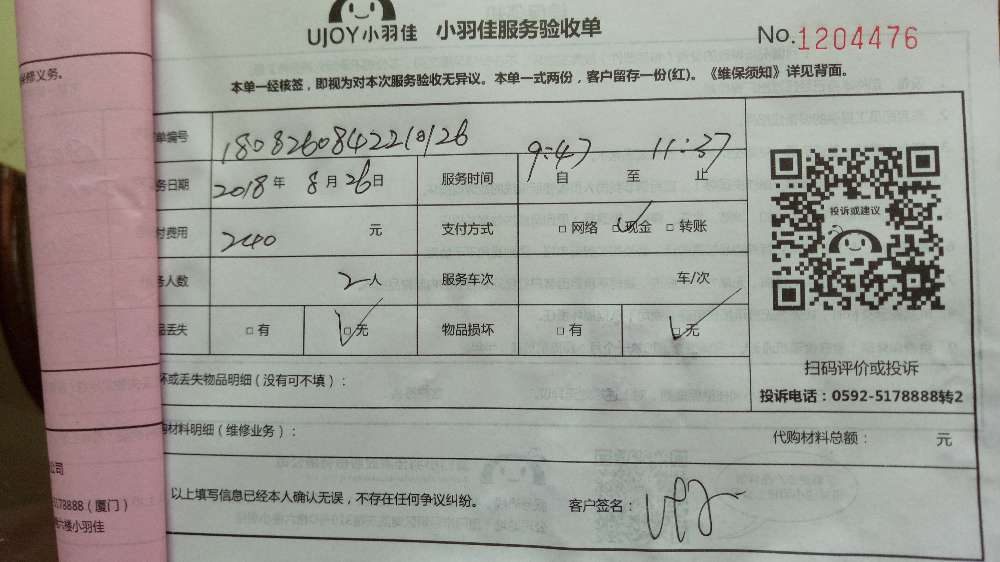 UJOY小羽佳 小羽佳服务验收单 No.1204476
保修义务。
本单一经核签，即视为对本次服务验收无异议。本单一式两份，客户留存一份(红)。《维保须知》详见背面。
单编号 18082608422 26
务日期 2018年 8月26日 服务时间 9:47自 至 11:37止
付费用 240 元 支付方式 □网络 □现金 □转账
投诉或建议
务人数 2人 服务车次 车/次
品丢失 □有 □无 物品损坏 □有 □无
扫码评价或投诉
坏或丢失物品明细（没有可不填）：
投诉电话：0592-5178888转2
购材料明细（维修业务）：
代购材料总额： 元
公司
5178888（厦门）
六楼小羽佳
以上填写信息已经本人确认无误，不存在任何争议纠纷。 客户签名：